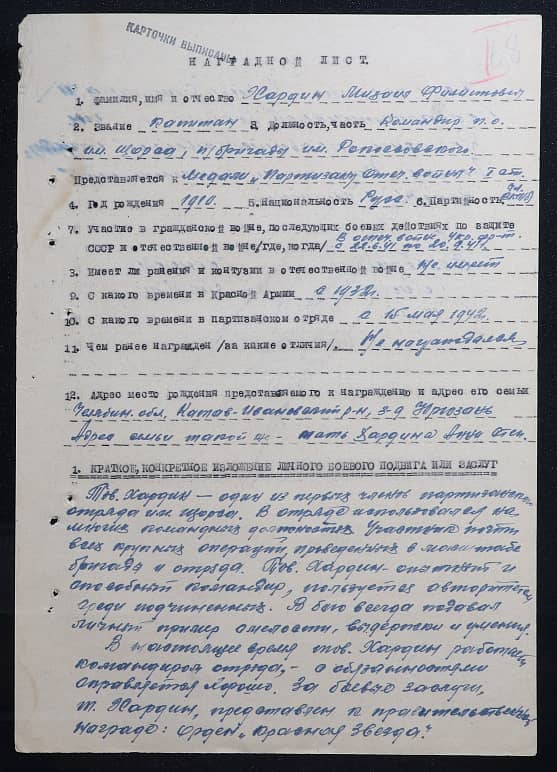 КАРТОЧКИ ВЫПИСАНЫ
НАГРАДНОЙ ЛИСТ.
1. Фамилия, имя и отчество Хардин Михаил
2. Звание Капитан 3. Должность, часть Командир п.о.
им. Щорса, п/бригады им. Рокоссовского.
Представляется к Медали „Партизану Отеч. войны" I ст.
4. Год рождения 1910. 5. Национальность Русс. 6. Партийность
7. Участие в гражданской войне, последующих боевых действиях по защите
СССР и отечественной войне/где, когда/ В отеч. войне, Укр. фр-т.
с 22.6.41 по 20.9.41г.
8. Имеет ли ранения и контузии в отечественной войне Не имеет
9. С какого времени в Красной Армии с 1932г.
10. С какого времени в партизанском отряде с 15 мая 1942г.
11. Чем ранее награжден /за какие отличия/. Не награждался
12. Адрес место рождения представляемого к награждению и адрес его семьи
Челябин. обл., Катав-Ивановский р-н, з-д Юрюзань
Адрес семьи такой же - мать Хардина Анна Степ.
1. КРАТКОЕ, КОНКРЕТНОЕ ИЗЛОЖЕНИЕ ЛИЧНОГО БОЕВОГО ПОДВИГА ИЛИ ЗАСЛУГ
Тов. Хардин – один из первых членов партизанского
отряда им. Щорса. В отряде использовался на
многих командных должностях. Участник почти
всех крупных операций, проведенных в масштабе
бригады и отряда. Тов. Хардин – опытный и
способный командир, пользуется авторитетом
среди подчиненных. В бою всегда подавал
личный пример смелости, выдержки и умения.
В настоящее время тов. Хардин работает
командиром отряда, – с обязанностями
справляется хорошо. За боевые заслуги,
т. Хардин, представлен к правительственной
награде: орден „Красная Звезда".